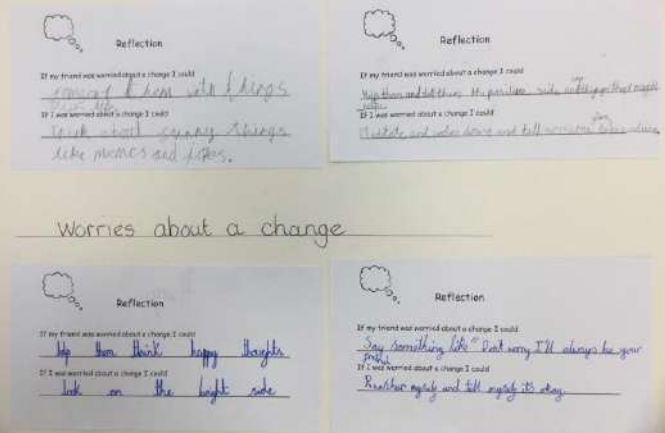 Reflection
If my friend was worried about a change I could
them with things
If I was worried about a change I could
think about funny things
like memes and jokes.
Reflection
If my friend was worried about a change I could
help them and tell them the positive side and things that might
If I was worried about a change I could
and calm down and tell someone
Worries about a change
Reflection
If my friend was worried about a change I could
help them think happy thoughts
If I was worried about a change I could
look on the bright side
Reflection
If my friend was worried about a change I could
Say something like "Dont worry I'll always be your
friend
If I was worried about a change I could
myself and tell myself its okay.